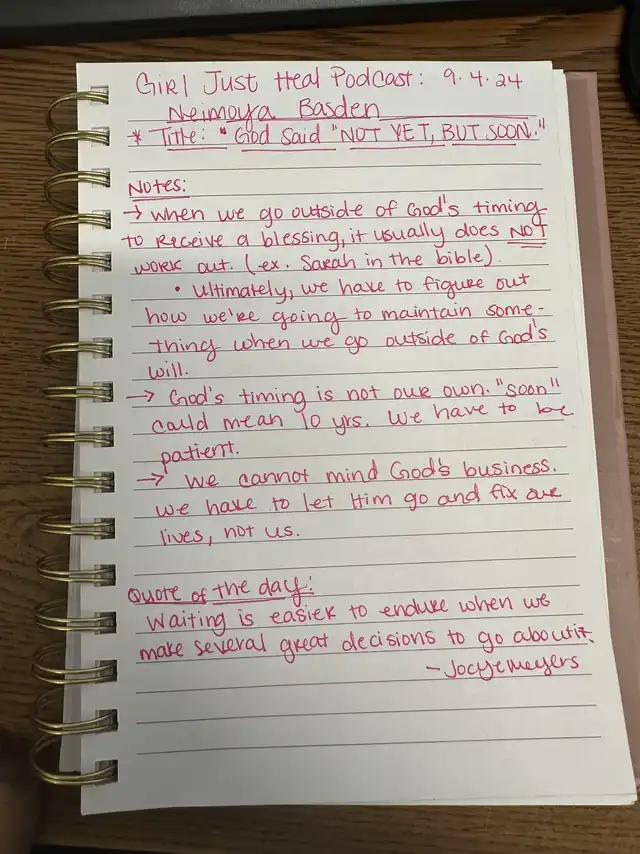 Girl Just Heal Podcast: 9.4.24
Neimoya Basden
* Title: "God Said "NOT YET, BUT SOON."
Notes:
→ When we go outside of God's timing
to receive a blessing, it usually does NOT
work out. (ex. Sarah in the bible).
• Ultimately, we have to figure out
how we're going to maintain some-
thing when we go outside of God's
will.
→ God's timing is not our own. "Soon"
could mean 10 yrs. We have to be
patient.
→ We cannot mind God's business.
We have to let Him go and fix our
lives, not us.
Quote of the day:
Waiting is easier to endure when we
make several great decisions to go about it.
- Jocye Meyers